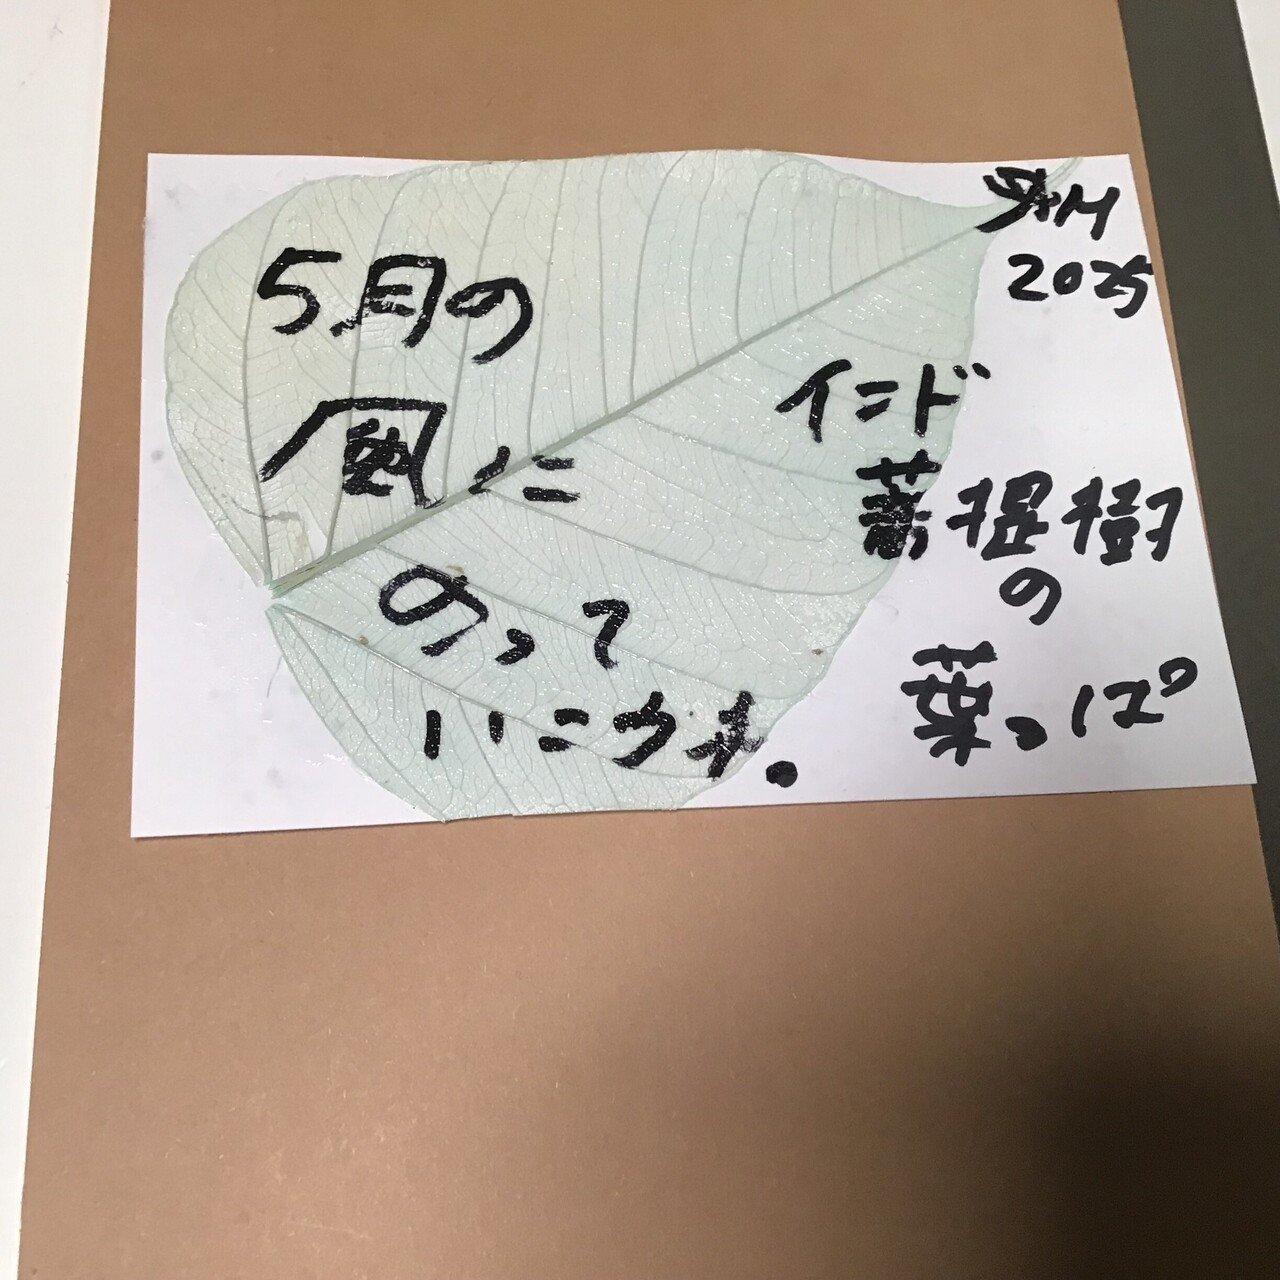 5月の
風に
のって
いこう
2025
インド
菩提樹
の
葉っぱ